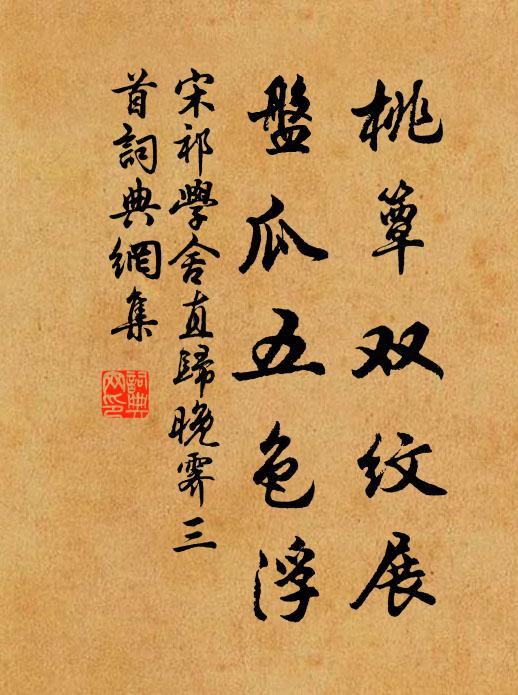 桃簟双纹展
盤瓜五色浮
宋祁學舍直歸晚霽三
首詞典網集
詞典网印